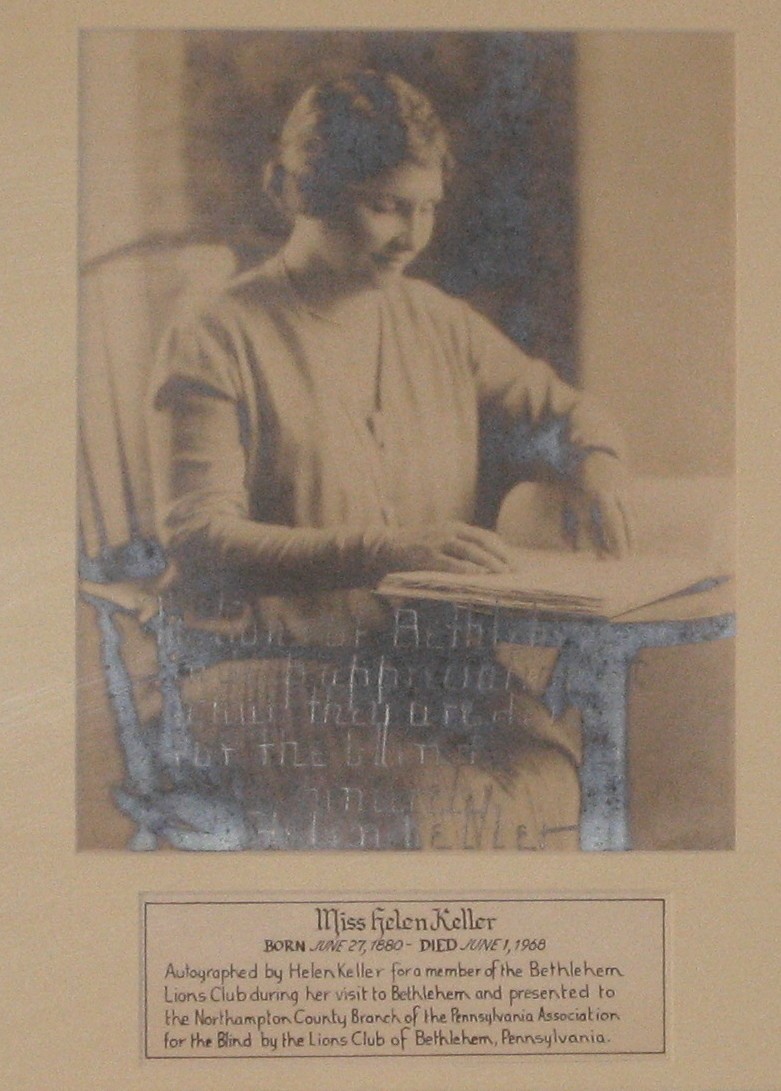 of Bethleh
they are d
for the blind
Sincerely
Helen Keller
Miss Helen Keller
BORN JUNE 27, 1880 - DIED JUNE 1, 1968
Autographed by Helen Keller for a member of the Bethlehem
Lions Club during her visit to Bethlehem and presented to
the Northampton County Branch of the Pennsylvania Association
for the Blind by the Lions Club of Bethlehem, Pennsylvania.